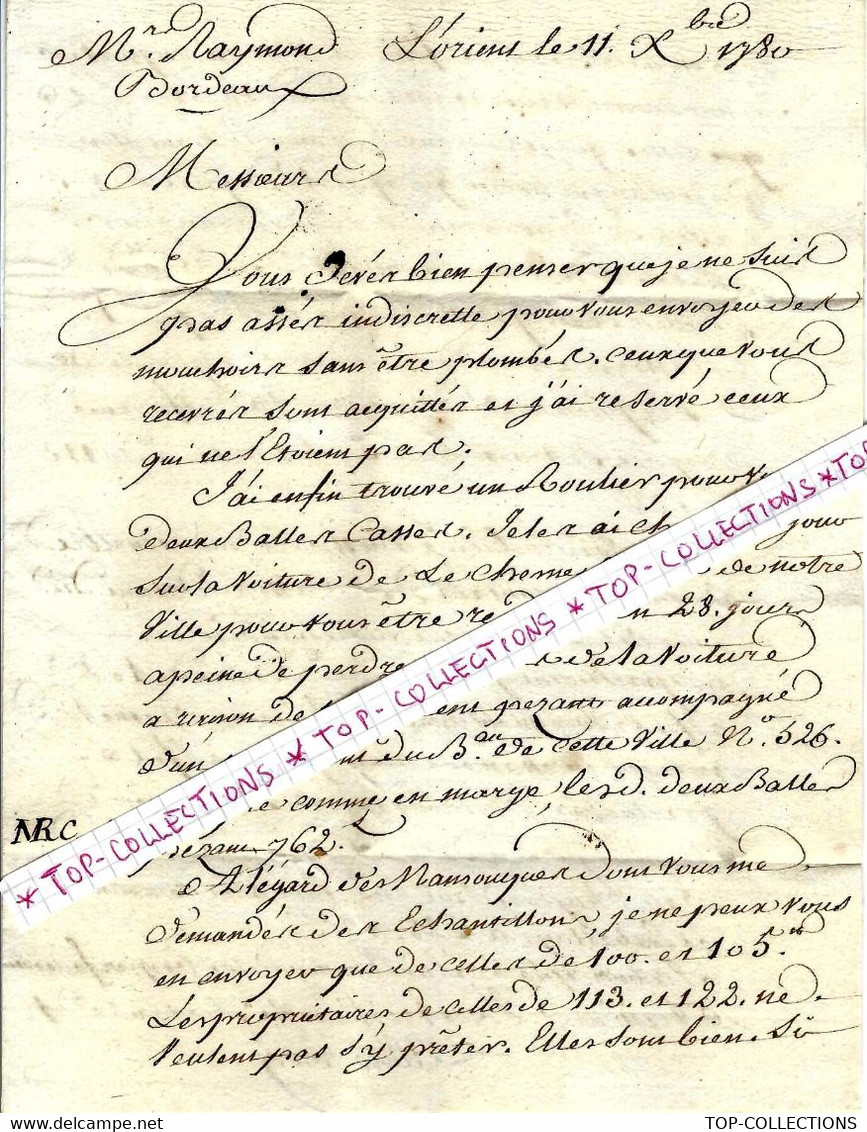 Mrs. Raymond L'orient le 11. Xbre 1780
Bordeaux
Messieurs
Vous Devés bien penser que je ne suis
pas assés indiscrette pour vous envoyer des
mouchoirs sans être plombés. ceux que vous
recevrés sont acquittés et j'ai reservé ceux
qui ne l'Etoient pas.
J'ai enfin trouvé un Roulier pour v
deux Balles Casses. Je les ai ch jour
sur la voiture de Le de notre
Ville pour vous être re n 28. jours
a peine de perdre de la Voiture
a raison de ent pezant accompagné
d'un du Bau. de cette Ville No. 526.
e comme en marge, lesd. deux Balles
MRC
pezant 762.
A l'égard des Nansouques dont vous me
demandés des Echantillons, je ne peux vous
en envoyer que de celles de 100. et 105.
Les propriétaires de celles de 113. et 122. ne
veulent pas s'y prêter. Elles sont bien. Si
* TOP-COLLECTIONS * TOP-COLLECTIONS * TOP-COLLECTIONS * TOP-COLLECTIONS * TOP
TOP-COLLECTIONS